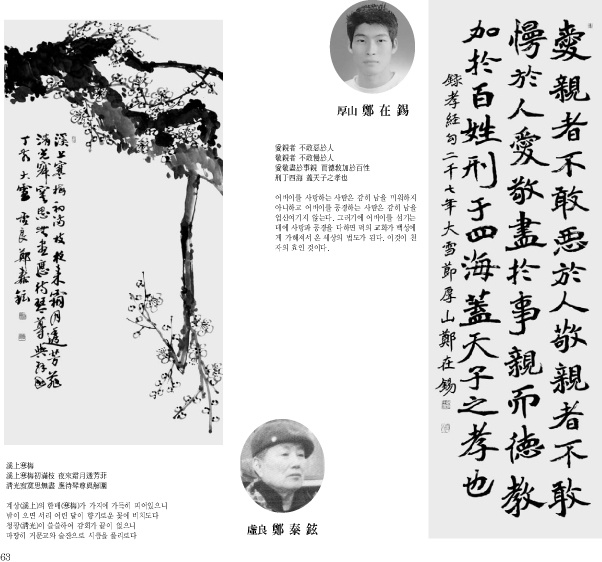 溪上寒梅初滿枝夜來霜月透芳菲
清光寂寞思無盡應待琴尊
丁亥大雪 虛良鄭泰鉉
溪上寒梅
溪上寒梅初滿枝 夜來霜月透芳菲
清光寂寞思無盡 應待琴尊與解圍
계상(溪上)의 한매(寒梅)가 가지에 가득히 피어있으니
밤이 오면 서리 어린 달이 향기로운 꽃에 비치도다
청광(淸光)이 쓸쓸하여 감회가 끝이 없으니
마땅히 거문고와 술잔으로 시름을 풀리로다
厚山 鄭在錫
愛親者 不敢惡於人
敬親者 不敢慢於人
愛敬盡於事親 而德敎加於百性
刑丁四海 蓋天子之孝也
어버이를 사랑하는 사람은 감히 남을 미워하지
아니하고 어버이를 공경하는 사람은 감히 남을
업신여기지 않는다. 그러기에 어버이를 섬기는
데에 사랑과 공경을 다하면 덕의 교화가 백성에
게 가해져서 온 세상의 법도가 된다. 이것이 천
자의 효인 것이다.
虛良 鄭泰鉉
愛親者不敢惡於人敬親者不敢
慢於人愛敬盡於事親而德教
加於百姓刑于四海蓋天子之孝也
錄孝經句二千七年大雪節厚山鄭在錫
63